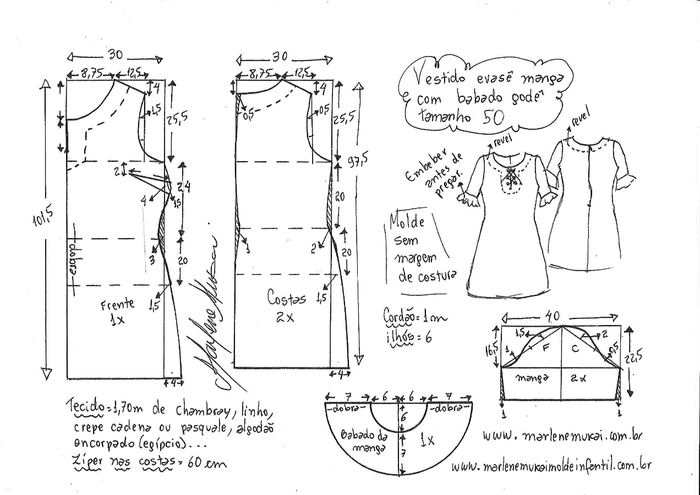 Vestido evasê manga
com babado godê
tamanho 50
30
8,75 12,5
4
1,5
25,5
101,5
2
24
4
1,5
3
20
1,5
dobra
Frente
1x
4
30
8,75 12,5
4
0,5
0,5
25,5
97,5
20
1
2
20
1,5
Costas
2x
4
Embeber
antes de
pregar.
revel
revel
Molde
sem
margem
de costura
Cordão=1m
ilhós=6
40
16,5
1,5
F
C
2
0,5
22,5
manga 2x
1
1
7 6 6 7
dobra
dobra
6
Babado da
manga
1x
7
Tecido=1,70m de chambray, linho,
crepe cadena ou pasquale, algodão
encorpado (egípcio)...
Zíper nas costas=60cm
www.marlenemukai.com.br
www.marlenemukaimoldeinfantil.com.br